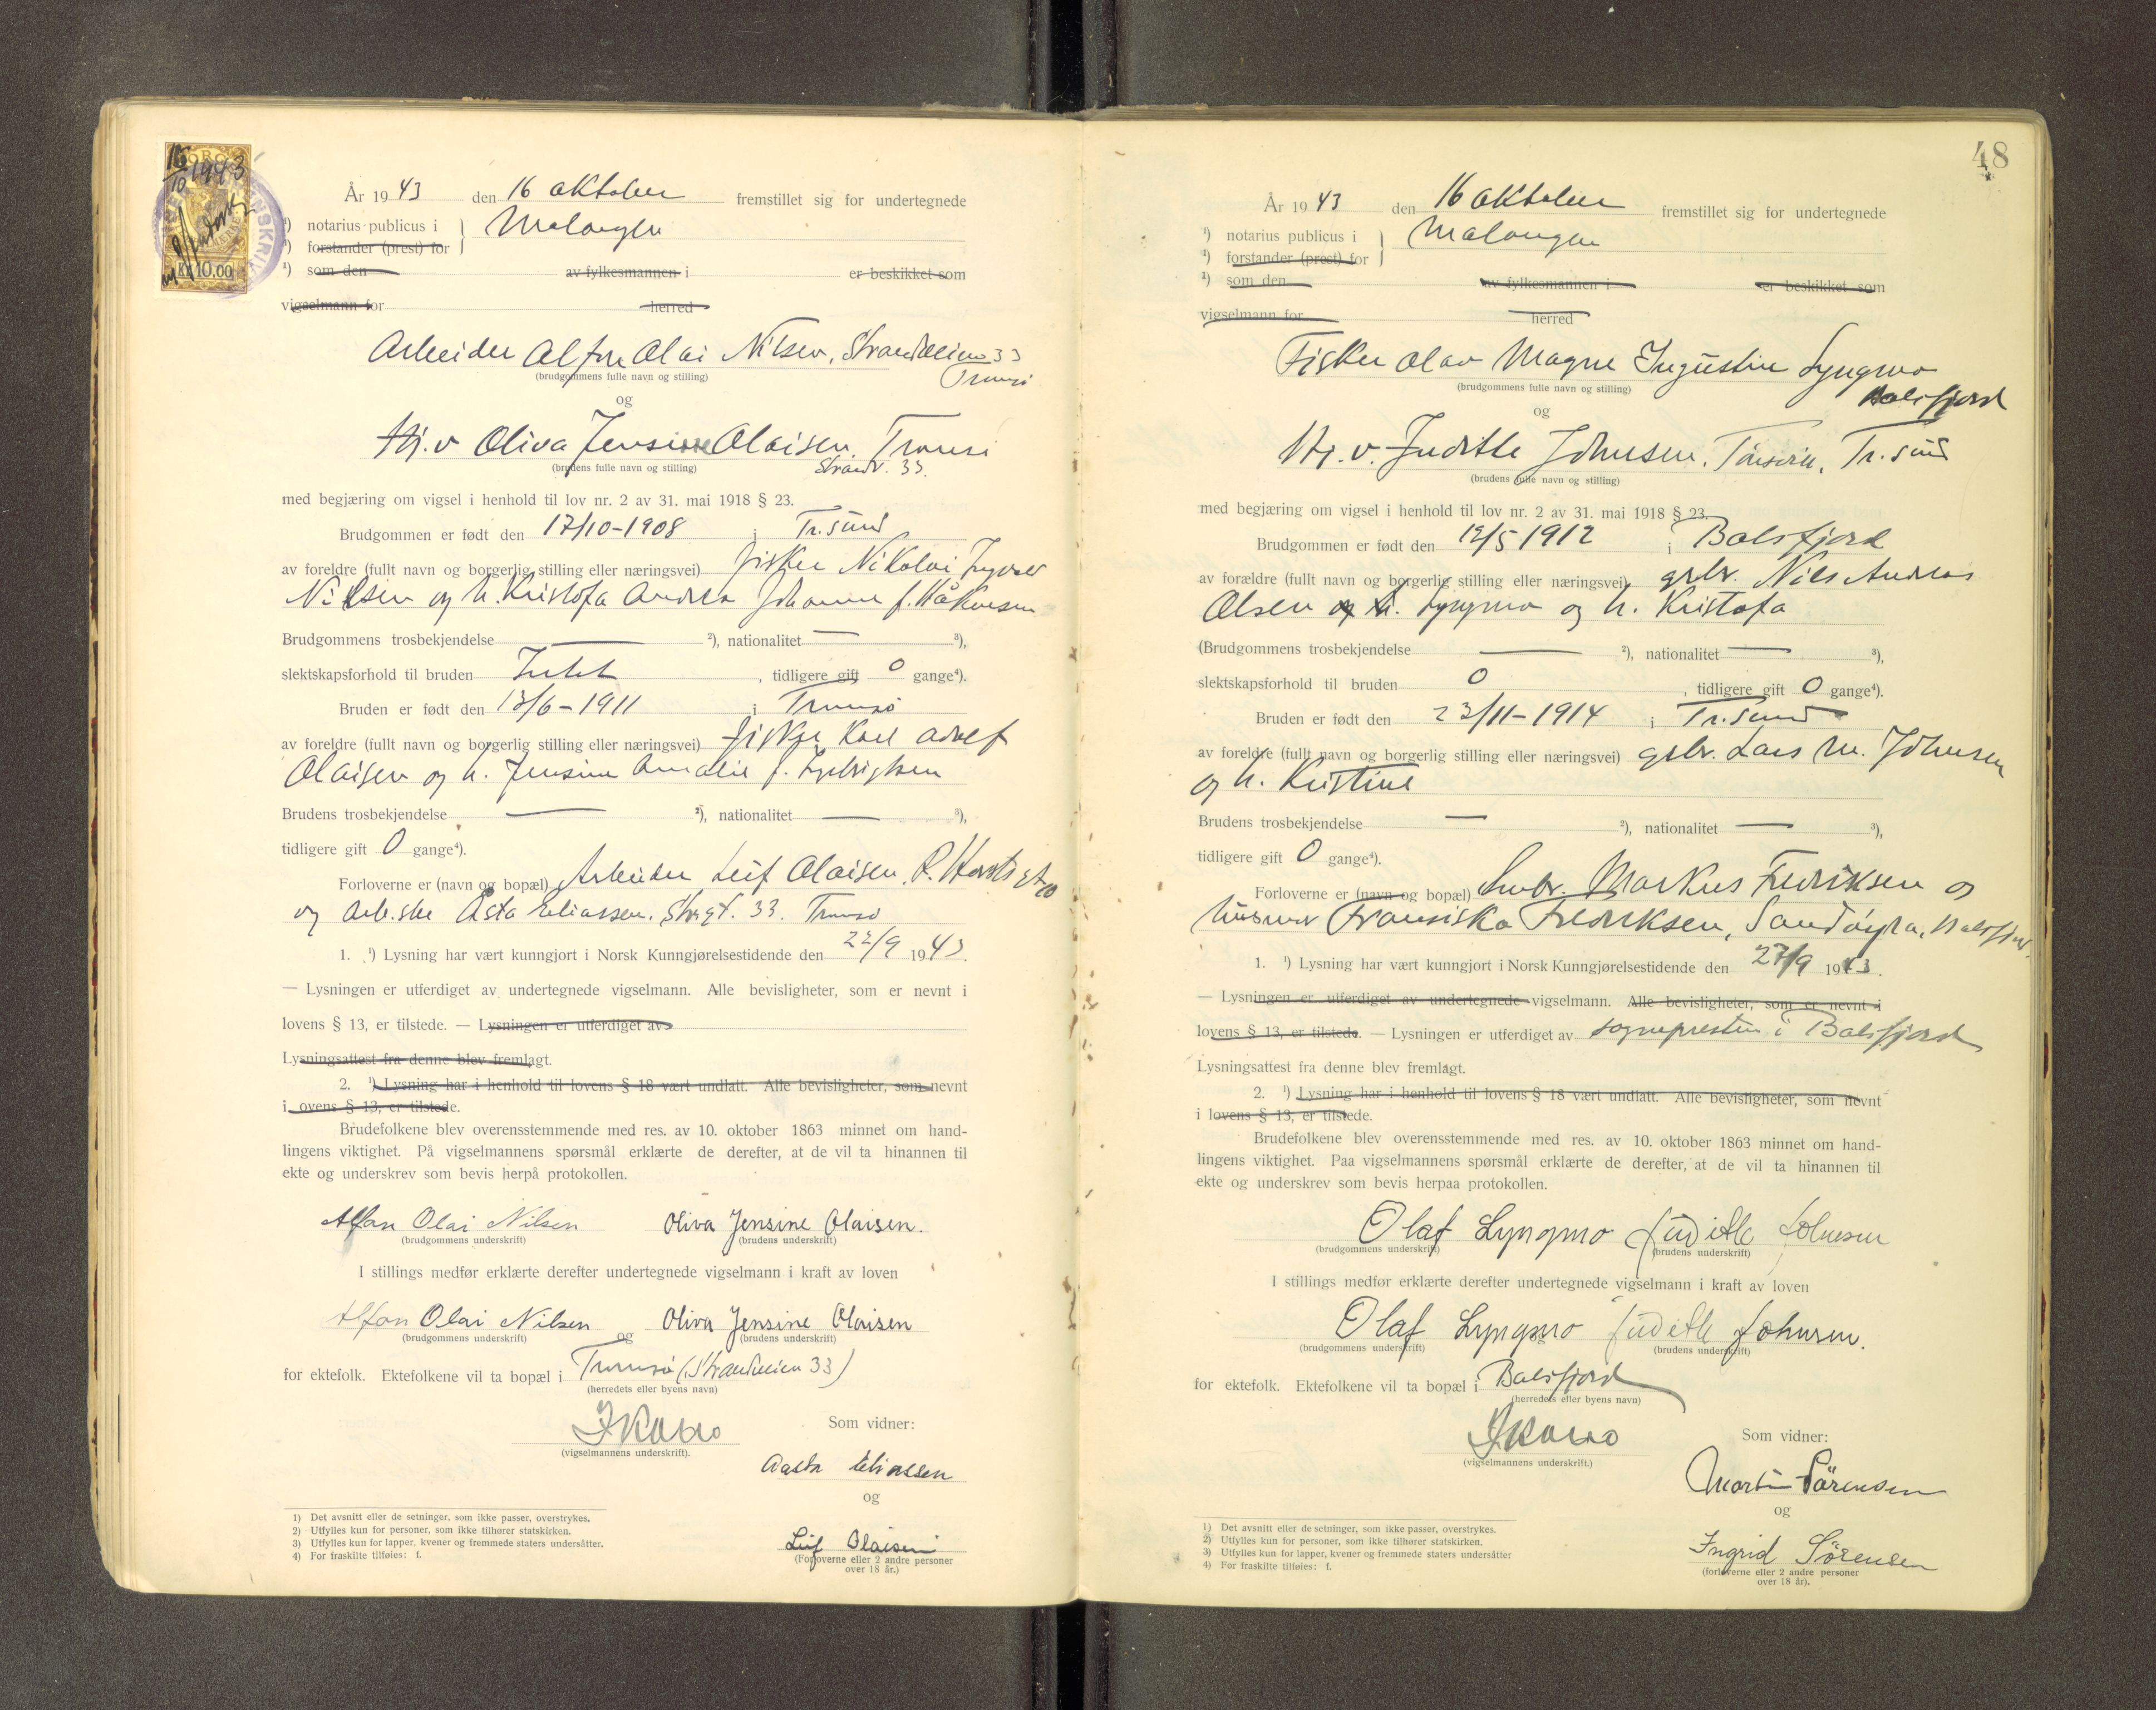 16/10 1943
NORGE
KR 10.00
År 1943 den 16 oktober fremstillet sig for undertegnede
¹) notarius publicus i } Malangen
¹) forstander (prest) for
¹) som den av fylkesmannen i er beskikket som
vigselmann for herred
Arbeider Alfon Olai Nilsen, Strandveien 33
Tromsø
(brudgommens fulle navn og stilling)
og
Hj.v Oliva Jensine Olaisen, Tromsø
(brudens fulle navn og stilling) Strandv. 33.
med begjæring om vigsel i henhold til lov nr. 2 av 31. mai 1918 § 23.
Brudgommen er født den 17/10-1908 i Tr.sund
av foreldre (fullt navn og borgerlig stilling eller næringsvei) fisker Nikolai
Nilsen og h. Kristofa Andrea Johanne f. Håkonsen
Brudgommens trosbekjendelse — ²), nationalitet — ³),
slektskapsforhold til bruden Intet, tidligere gift 0 gange⁴).
Bruden er født den 13/6-1911 i Tromsø
av foreldre (fullt navn og borgerlig stilling eller næringsvei) fisker Karl Adolf
Olaisen og h. Jensine Amalie f.
Brudens trosbekjendelse — ²), nationalitet — ³),
tidligere gift 0 gange⁴).
Forloverne er (navn og bopæl) Arbeider Leif Olaisen,
og Arb.ske Åsta Eliassen. 33. Tromsø
1. ¹) Lysning har vært kunngjort i Norsk Kunngjørelsestidende den 22/9 1943.
— Lysningen er utferdiget av undertegnede vigselmann. Alle bevisligheter, som er nevnt i
lovens § 13, er tilstede. — Lysningen er utferdiget av
Lysningsattest fra denne blev fremlagt.
2. ¹) Lysning har i henhold til lovens § 18 vært undlatt. Alle bevisligheter, som nevnt
i ovens § 13, er tilstede.
Brudefolkene blev overensstemmende med res. av 10. oktober 1863 minnet om hand-
lingens viktighet. På vigselmannens spørsmål erklærte de derefter, at de vil ta hinannen til
ekte og underskrev som bevis herpå protokollen.
Alfon Olai Nilsen Oliva Jensine Olaisen.
(brudgommens underskrift) (brudens underskrift)
I stillings medfør erklærte derefter undertegnede vigselmann i kraft av loven
Alfon Olai Nilsen og Oliva Jensine Olaisen
(brudgommens underskrift) (brudens underskrift)
for ektefolk. Ektefolkene vil ta bopæl i Tromsø (Strandveien 33)
(herredets eller byens navn)
(vigselmannens underskrift).
Som vidner:
Aasta Eliassen
og
Leif Olaisen
(Forloverne eller 2 andre personer
over 18 år.)
1) Det avsnitt eller de setninger, som ikke passer, overstrykes.
2) Utfylles kun for personer, som ikke tilhører statskirken.
3) Utfylles kun for lapper, kvener og fremmede staters undersåtter.
4) For fraskilte tilføies: f.
48
År 1943 den 16 oktober fremstillet sig for undertegnede
¹) notarius publicus i } Malangen
¹) forstander (prest) for
¹) som den av fylkesmannen i er beskikket som
vigselmann for herred
Fisker Olav Magne Ingustin Lyngmo
Balsfjord
(brudgommens fulle navn og stilling)
og
Hj. v. Judithe Johnsen, Tr.sund
(brudens fulle navn og stilling)
med begjæring om vigsel i henhold til lov nr. 2 av 31. mai 1918 § 23.
Brudgommen er født den 12/5 1912 i Balsfjord
av forældre (fullt navn og borgerlig stilling eller næringsvei) grbr. Nils Andreas
Olsen Lyngmo og h. Kristofa
(Brudgommens trosbekjendelse — ²), nationalitet — ³),
slektskapsforhold til bruden 0, tidligere gift 0 gange⁴).
Bruden er født den 23/11-1914 i Tr.sund
av foreldre (fullt navn og borgerlig stilling eller næringsvei) grbr. Lars M. Johnsen
og h. Kristine
Brudens trosbekjendelse — ²), nationalitet — ³),
tidligere gift 0 gange⁴).
Forloverne er (navn og bopæl) Smbr. Markus Fredriksen og
husmor Fransiska Fredriksen, Sandøyra, Balsfjord.
1. ¹) Lysning har vært kunngjort i Norsk Kunngjørelsestidende den 27/9 1943.
— Lysningen er utferdiget av undertegnede vigselmann. Alle bevisligheter, som er nevnt i
lovens § 13, er tilstede. — Lysningen er utferdiget av sognepresten i Balsfjord
Lysningsattest fra denne blev fremlagt.
2. ¹) Lysning har i henhold til lovens § 18 vært undlatt. Alle bevisligheter, som nevnt
i lovens § 13, er tilstede.
Brudefolkene blev overensstemmende med res. av 10. oktober 1863 minnet om hand-
lingens viktighet. Paa vigselmannens spørsmål erklærte de derefter, at de vil ta hinannen til
ekte og underskrev som bevis herpaa protokollen.
Olaf Lyngmo Judithe Johnsen
(brudgommens underskrift) (brudens underskrift)
I stillings medfør erklærte derefter undertegnede vigselmann i kraft av loven
Olaf Lyngmo og Judithe Johnsen.
(brudgommens underskrift) (brudens underskrift)
for ektefolk. Ektefolkene vil ta bopæl i Balsfjord
(herredets eller byens navn)
(vigselmannens underskrift.)
Som vidner:
Martin Sörensen
og
Ingrid Sörensen
(forloverne eller 2 andre personer
over 18 år).
1) Det avsnitt eller de setninger, som ikke passer, overstrykes.
2) Utfylles kun for personer, som ikke tilhører statskirken.
3) Utfylles kun for lapper, kvener og fremmede staters undersåtter
4) For fraskilte tilføies: f.